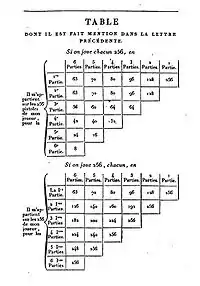 TABLE
DONT IL EST FAIT MENTION DANS LA LETTRE
PRÉCÉDENTE.
Si on joue chacun 256, en
6 5 4 3 2 1
Parties. Parties. Parties. Parties. Parties. Partie.
Il m'ap-
partient
sur les 256
pistoles
de mon
joueur,
pour la
1re Partie. 63 70 80 96 128 256
2e Partie. 63 70 80 96 128
3e Partie. 56 60 64 64
4e Partie. 42 40 32
5e Partie. 24 16
6e Partie. 8
Si on joue 256, chacun, en
6 5 4 3 2 1
Parties. Parties. Parties. Parties. Parties. Partie.
Il m'ap-
partient
sur les 256
de mon
joueur,
pour les
La 1re Partie. 63 70 80 96 128 256
2 Parties. 126 140 160 192 256
3 Parties. 182 200 224 256
4 Parties. 224 240 256
5 Parties. 248 256
6 Parties. 256